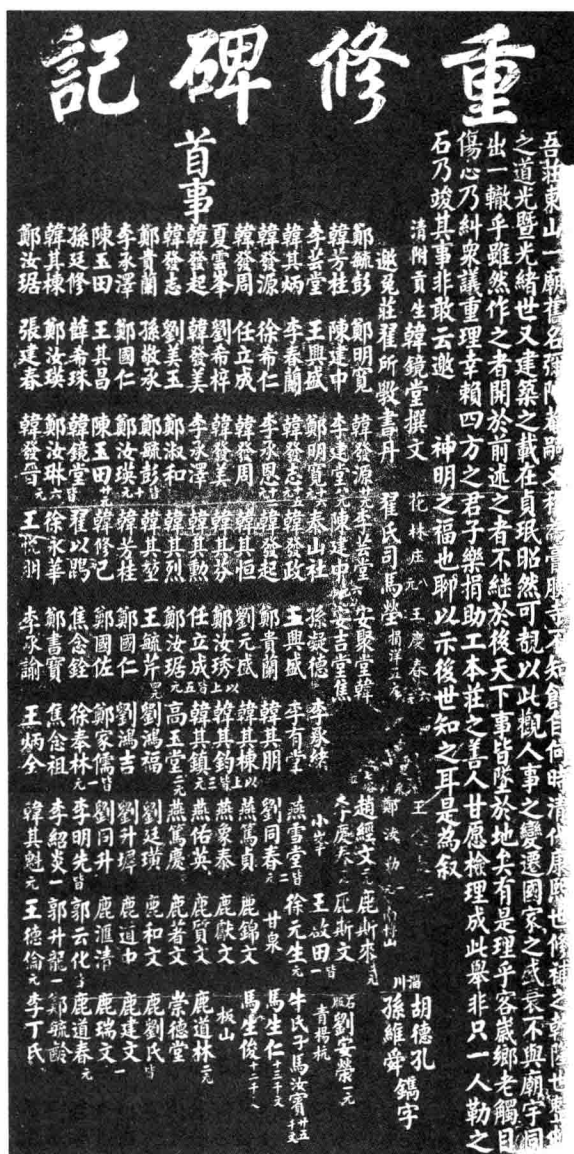 重修碑記
吾莊東山一廟舊名彌陀菴嗣又移為膏腴寺不知創自何時清代康熙世修補之乾隆世整
之道光暨光緒世又建築之載在貞珉昭然可覩以此觀人事之變遷國家之盛衰不與廟宇同
出一轍乎雖然作之者開於前述之者不继於後天下事皆墜於地矣有是理乎客歲鄉老觸目
傷心乃糾衆議重理幸賴四方之君子樂捐助工本莊之善人甘愿檢理成此舉非只一人勒之
石乃竣其事非敢云邀 神明之福也聊以示後世知之耳是為叙
清附貢生韓鏡堂撰文 花林庄 王慶春
邀兔莊翟所敦書丹 翟氏司馬瑩 捐洋五元
首事
鄭毓彭 韓芳桂 李芸堂 韓其炳 韓發源 韓發周 夏雲峯 韓發起 韓發志 鄭貴蘭 李承澤 陳玉田 孫廷修 韓其棟 鄭汝琚
鄭明寬 陳建中 王興盛 李春蘭 徐希仁 任立成 劉希梓 韓發美 劉美玉 孫敬承 鄭國仁 王其昌 鄭汝瑛 韓希珠 張建春
韓發源 李建堂 鄭明寬 韓發志 李承恩 韓發周 韓發美 李承澤 鄭淑和 鄭毓彭 鄭汝瑛 陳玉田 韓鏡堂 鄭汝琳 韓發晉
李芸堂 陳建中 泰山社 韓發政 韓發起 韓其恒 韓其芬 韓其勲 韓其烈 韓其堃 韓芳桂 韓修己 翟以鵾 徐永華 王悅朋
安聚堂韓 安吉堂焦 孫凝德 王興盛 鄭貴蘭 劉元盛 鄭汝琇 任立成 鄭汝琚 王毓芹 鄭國仁 鄭國佐 焦念銓 鄭書寶 李承諭
李承緒 李有堂 韓其朋 韓其棟 韓其鈞 韓其鎮 高玉堂 劉鴻福 劉鴻吉 鄭家儒 徐泰林 焦念祖 王炳全
趙經文 小峯 燕雪堂 劉同春 燕篤貞 燕象泰 燕佑英 燕篤慶 劉廷璜 劉升墀 劉同升 李明先 李紹炎 韓其魁
鹿斯來 鹿斯文 王啟田 徐元生 甘泉 鹿錦文 鹿獻文 鹿質文 鹿著文 鹿和文 鹿道中 鹿滙清 郭云化 郭升龍 王德倫
淄川 胡德孔 孫維舜鐫字
劉安榮 青楊杭 牛氏子馬汝賓 馬生仁 馬生俊 板山 鹿道林 崇德堂 鹿劉氏 鹿建文 鹿瑞文 鹿道春 鄭毓齡 李丁氏